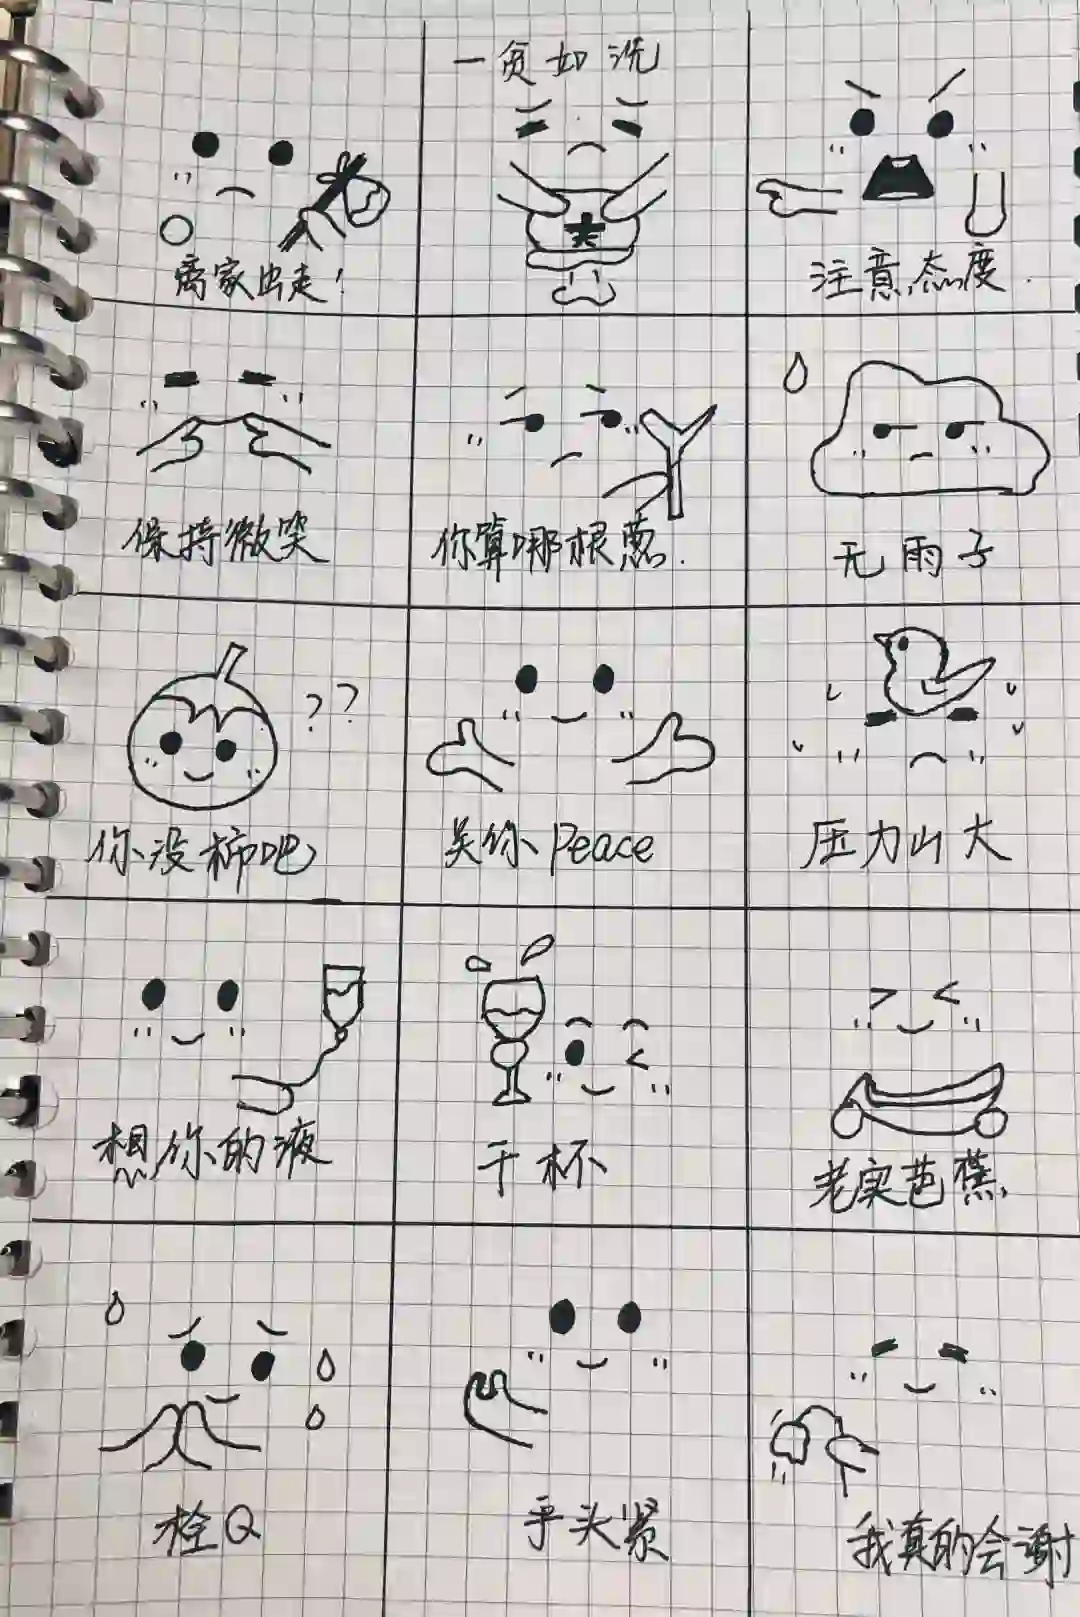 一贫如洗
离家出走！
注意态度.
保持微笑
你算哪根葱.
无雨子
??
你没柿吧
关你Peace
压力山大
想你的液
干杯
老实芭蕉
栓Q
手头紧
我真的会谢